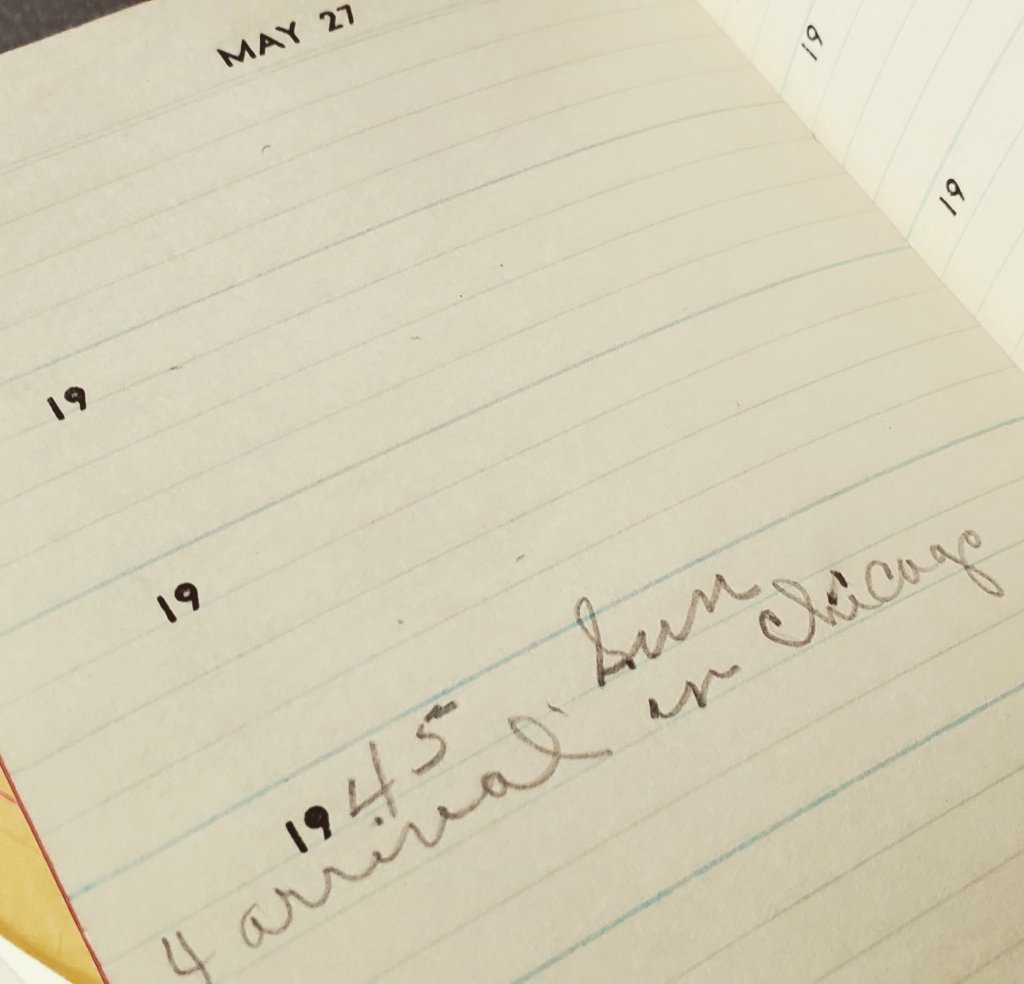 MAY 27
19
19
1945 Sun
4 arrival in Chicago
19
19